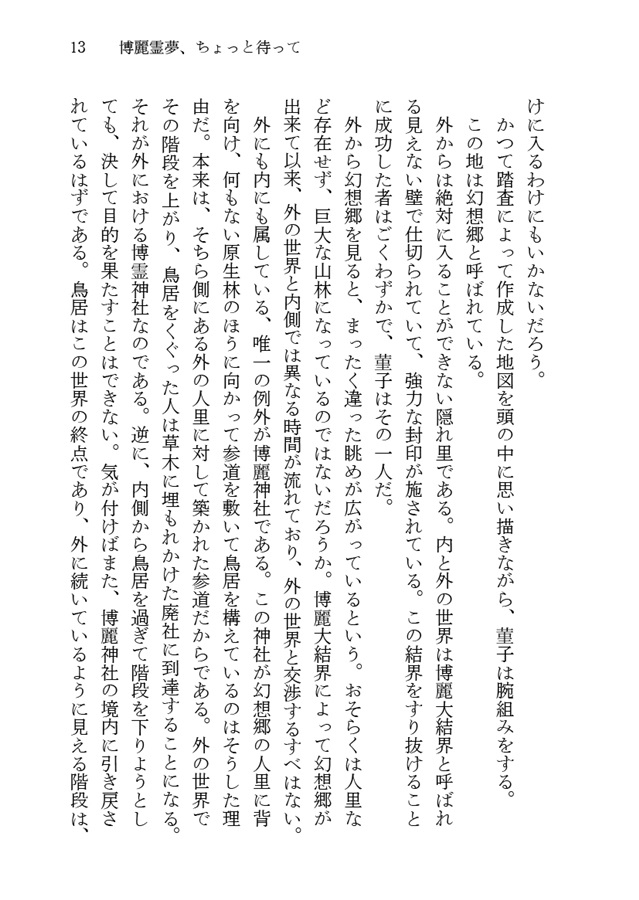 13　博麗霊夢、ちょっと待って
けに入るわけにもいかないだろう。
　かつて踏査によって作成した地図を頭の中に思い描きながら、菫子は腕組みをする。
　この地は幻想郷と呼ばれている。
　外からは絶対に入ることができない隠れ里である。内と外の世界は博麗大結界と呼ばれ
る見えない壁で仕切られていて、強力な封印が施されている。この結界をすり抜けること
に成功した者はごくわずかで、菫子はその一人だ。
　外から幻想郷を見ると、まったく違った眺めが広がっているという。おそらくは人里な
ど存在せず、巨大な山林になっているのではないだろうか。博麗大結界によって幻想郷が
出来て以来、外の世界と内側では異なる時間が流れており、外の世界と交渉するすべはない。
　外にも内にも属している、唯一の例外が博麗神社である。この神社が幻想郷の人里に背
を向け、何もない原生林のほうに向かって参道を敷いて鳥居を構えているのはそうした理
由だ。本来は、そちら側にある外の人里に対して築かれた参道だからである。外の世界で
その階段を上がり、鳥居をくぐった人は草木に埋もれかけた廃社に到達することになる。
それが外における博霊神社なのである。逆に、内側から鳥居を過ぎて階段を下りようとし
ても、決して目的を果たすことはできない。気が付けばまた、博麗神社の境内に引き戻さ
れているはずである。鳥居はこの世界の終点であり、外に続いているように見える階段は、